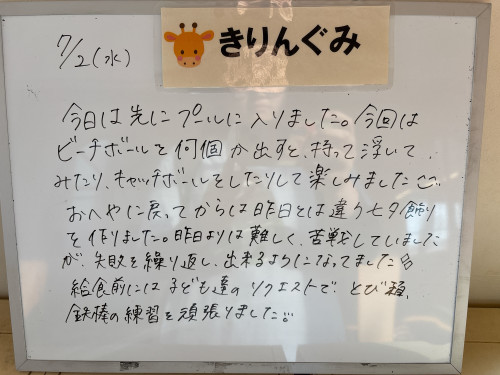 7/2(水)
きりんぐみ
今日は先にプールに入りました。今回は
ビーチボールを何個か出すと、持って浮いて
みたり、キャッチボールをしたりして楽しみました
おへやに戻ってからは昨日とは違う七夕飾り
を作りました。昨日よりは難しく、苦戦していました
が、失敗を繰り返し、出来るようになってました
給食前には子ども達のリクエストで、とび箱、
鉄棒の練習を頑張りました。